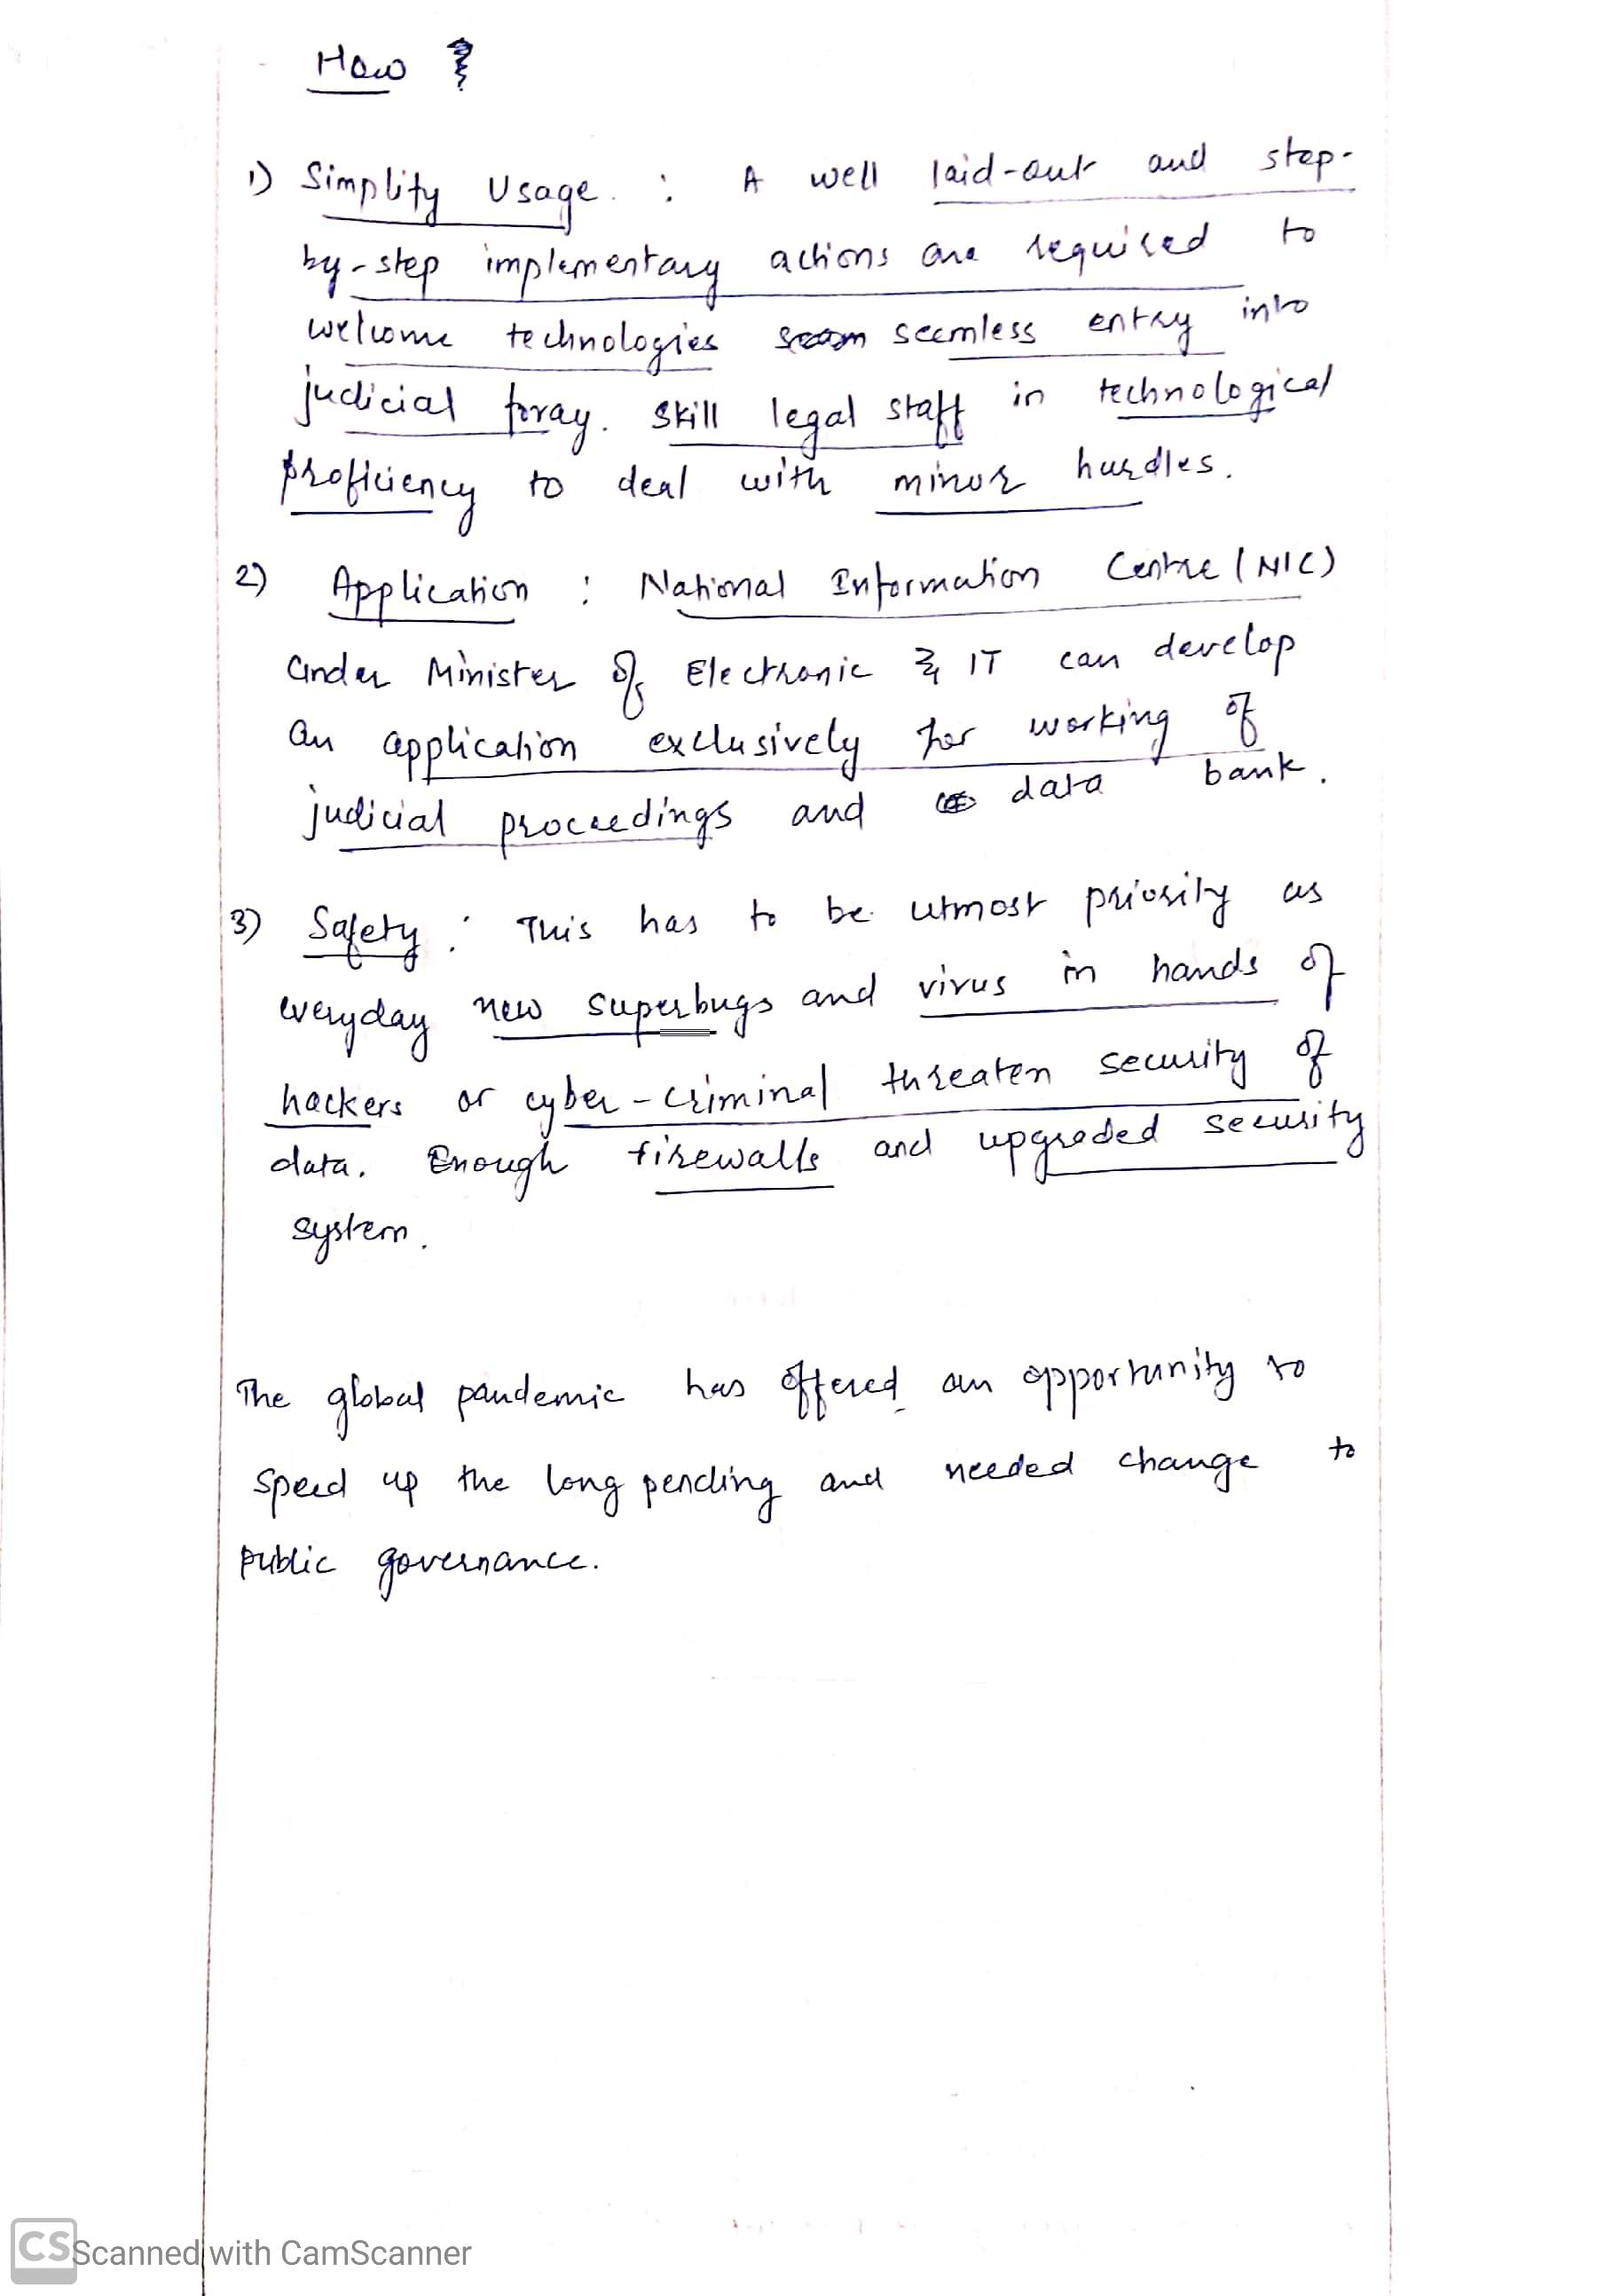 How ?
1) Simplify Usage. : A well laid-out and step-
by-step implementary actions are required to
welcome technologies seemless entry into
judicial foray. Skill legal staff in technological
proficiency to deal with minor hurdles.
2) Application : National Information Centre (NIC)
under Minister of Electronic & IT can develop
an application exclusively for working of
judicial proceedings and data bank.
3) Safety : This has to be utmost priority as
everyday new superbugs and virus in hands of
hackers or cyber-criminal threaten security of
data. Enough firewalls and upgraded security
system.
The global pandemic has offered an opportunity to
speed up the long pending and needed change to
public governance.
CS Scanned with CamScanner